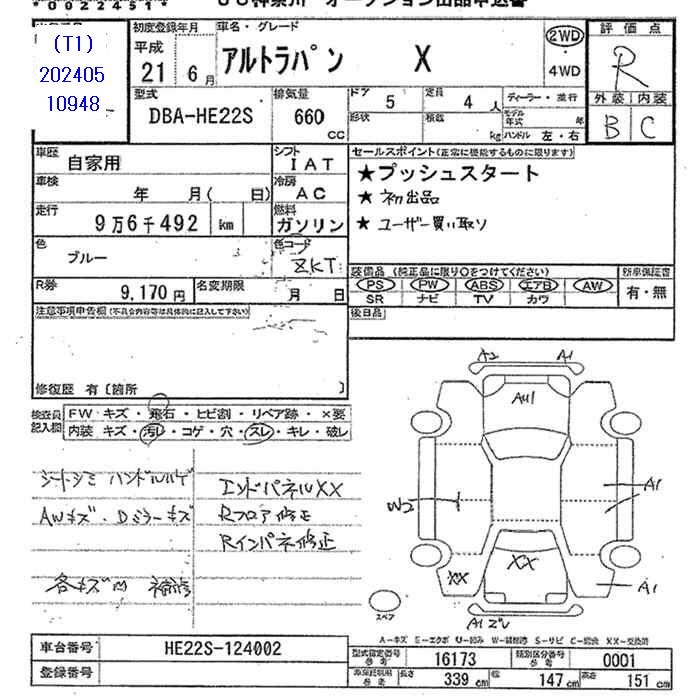 *00224511*
JU神奈川 オークション出品申込書
(T1)
202405
10948
初度登録年月
平成
21 6月
車名・グレード
アルトラパン X
2WD
・
4WD
評価点
R
外装 内装
B C
型式
DBA-HE22S
排気量
660
CC
ドア 5 定員 4人
形状 積載 kg
ディーラー・並行
モデル年式 年
ハンドル 左・右
車歴
自家用
シフト
IAT
車検
年 月( 日)
冷房
AC
走行
9万6千492 km
燃料
ガソリン
色
ブルー
色コード
ZKT
R券
9,170円
名変期限
月 日
セールスポイント(正常に機能するものに限ります)
★プッシュスタート
★初出品
★ユーザー買い取り
装備品(純正品に限り○をつけてください)
PS PW ABS エアB AW
SR ナビ TV カワ
新車保証書
有・無
後日品
注意事項申告欄(不具合内容等は具体的に記入して下さい)
修復歴 有〔箇所 〕
検査員
記入欄
FW キズ・飛石・ヒビ割・リペア跡・×要
内装 キズ・汚レ・コゲ・穴・スレ・キレ・破レ
シートシミ ハンドルハゲ
AWキズ・Dミラーキズ
各キズ凹 補修
エンドパネルXX
Rフロア修正
Rインパネ修正
A2 A1
AU1
W2
A1
XX
XX
A1
スペア
A-キズ E-エクボ U-凹み W-補修跡 S-サビ C-腐食 XX-交換済
車台番号
HE22S-124002
登録番号
型式指定番号
参考
16173
類別区分番号
参考
0001
参考
長さ 339 cm
幅 147 cm
高さ 151 cm